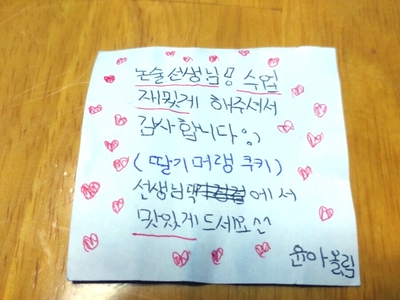 논술선생님!! 수업
재밌게 해주셔서
감사합니다:)
(딸기머랭쿠키)
선생님 에서
맛있게드세요^^
윤아올림